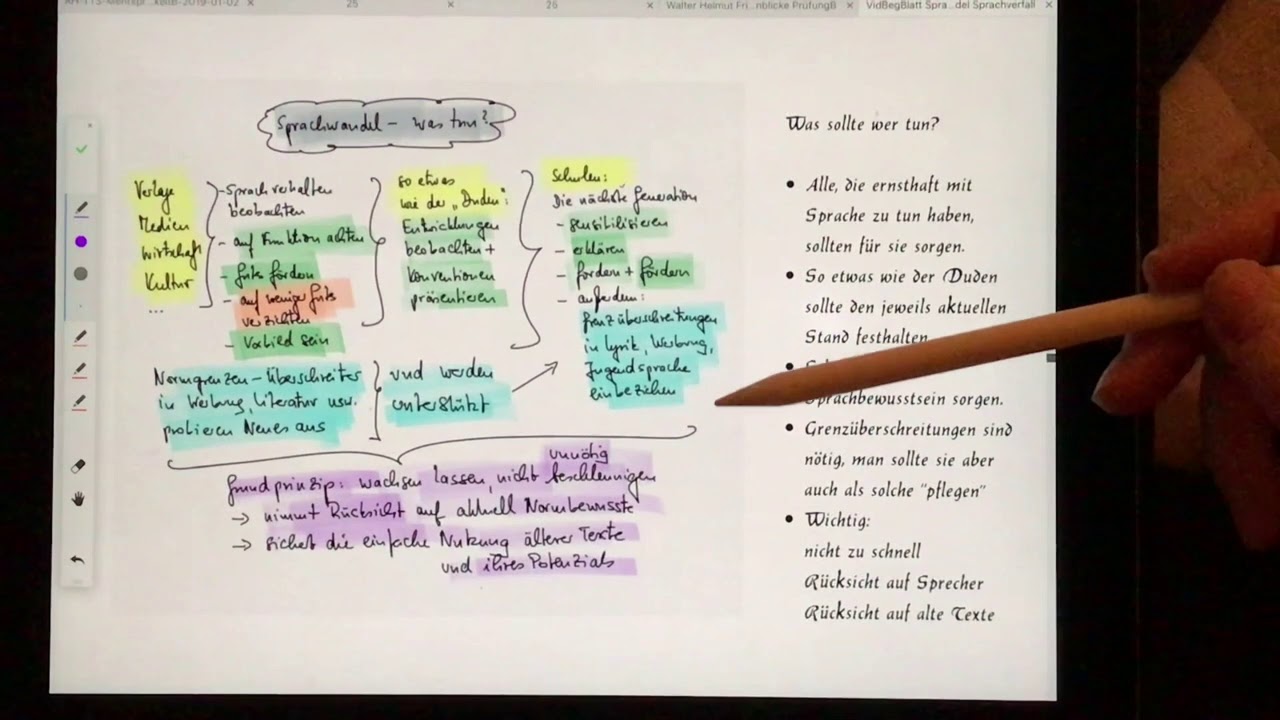 25
26
Walter Helmut Fri...nblicke PrüfungB
VidBegBlatt Spra...del Sprachverfall
Sprachwandel – was tun?
Verlage
Medien
Wirtschaft
Kultur
...
- Sprachverhalten
beobachten
- auf Funktion achten
- Gutes fördern
- auf weniger Gutes
verzichten
- Vorbild sein
so etwas
wie der "Duden":
Entwicklungen
beobachten +
Konventionen
präsentieren
Schulen:
Die nächste Generation
- sensibilisieren
- erklären
- fordern + fördern
- außerdem:
Grenzüberschreitungen
in Lyrik, Werbung,
Jugendsprache
einbeziehen
Normgrenzen-Überschreiter
in Werbung, Literatur usw.
probieren Neues aus
und werden
unterstützt
unnötig
Grundprinzip: wachsen lassen, nicht beschleunigen
→ nimmt Rücksicht auf aktuell Normbewusste
→ sichert die einfache Nutzung älterer Texte
und ihres Potenzials
Was sollte wer tun?
• Alle, die ernsthaft mit
Sprache zu tun haben,
sollten für sie sorgen.
• So etwas wie der Duden
sollte den jeweils aktuellen
Stand festhalten
•
Sprachbewusstsein sorgen.
• Grenzüberschreitungen sind
nötig, man sollte sie aber
auch als solche "pflegen"
• Wichtig:
nicht zu schnell
Rücksicht auf Sprecher
Rücksicht auf alte Texte